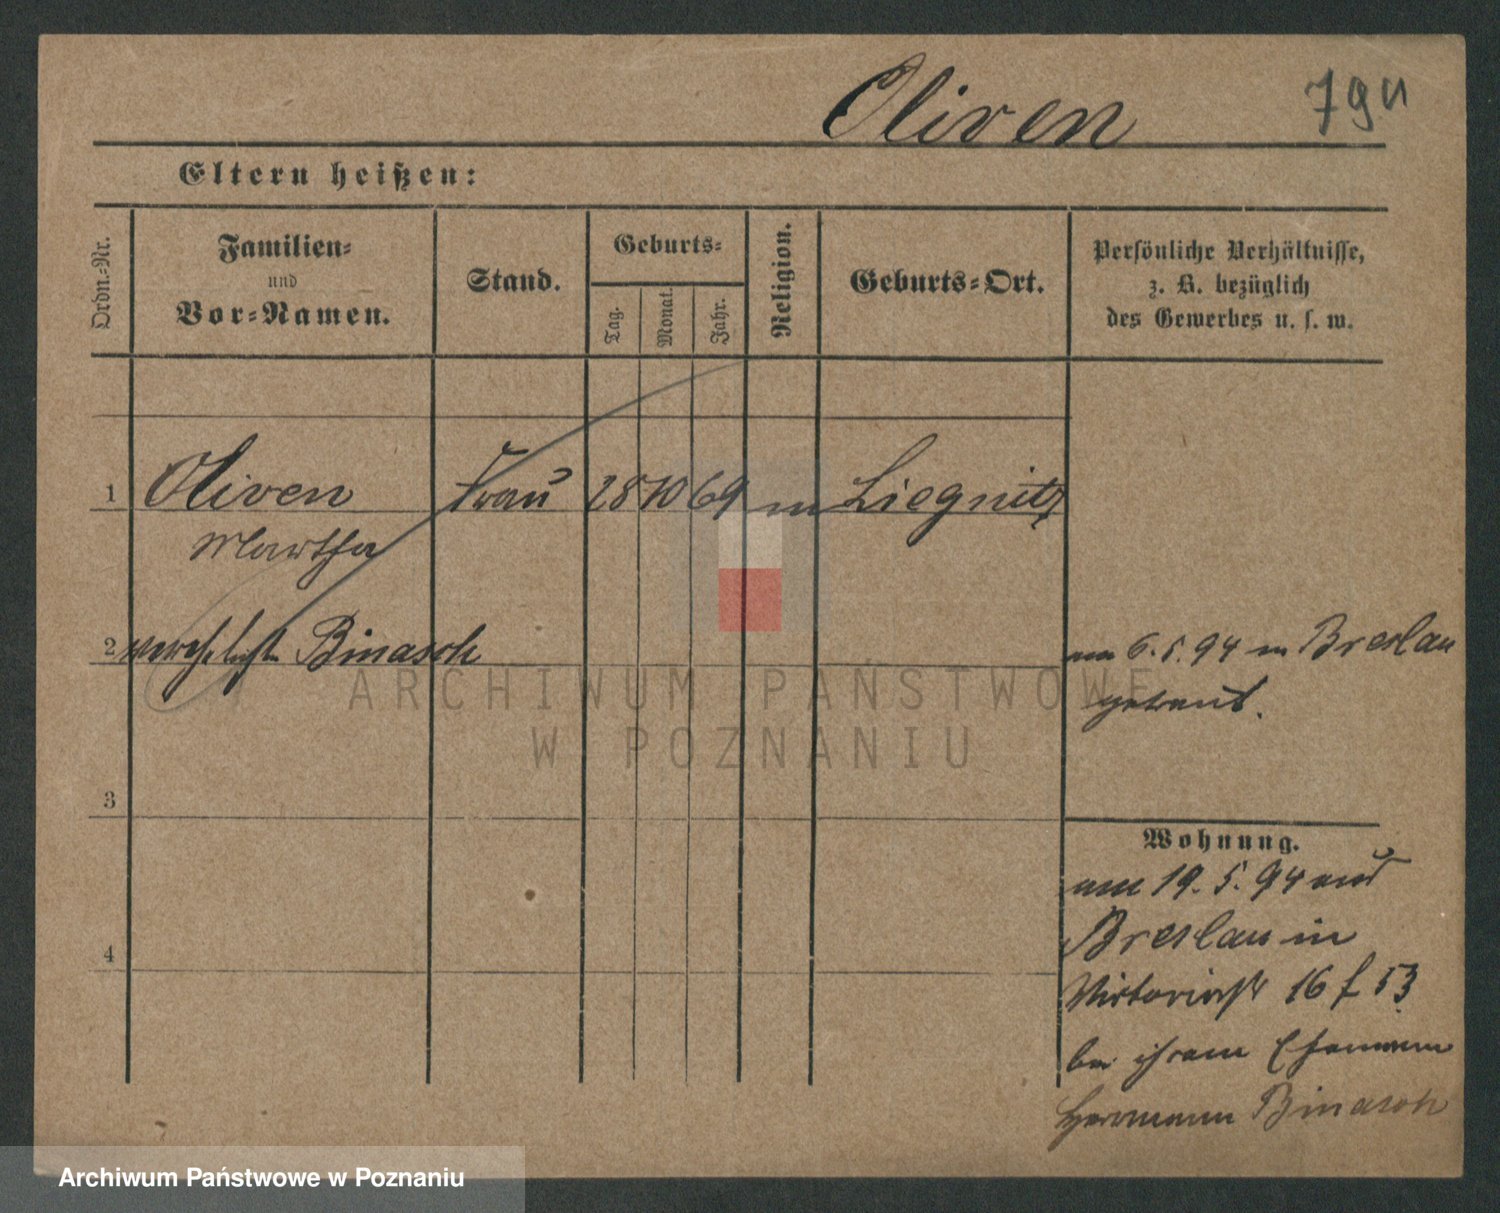 Oliven
79
Eltern heißen:
Ordn.-Nr.
Familien-
und
Vor-Namen.
Stand.
Geburts-
Tag.
Monat.
Jahr.
Religion.
Geburts-Ort.
Persönliche Verhältnisse,
z. B. bezüglich
des Gewerbes u. s. w.
1 Oliven Frau 28 10 69 m Liegnitz
Martha
2 verehelicht Binasch
am 6.5.94 in Breslau
getraut.
3
4
Wohnung.
am 19. 5. 94 aus
Breslau in
Victoriastr 16 f 53
bei ihrem Ehemann
Hermann Binasch
ARCHIWUM PAŃSTWOWE
W POZNANIU
Archiwum Państwowe w Poznaniu